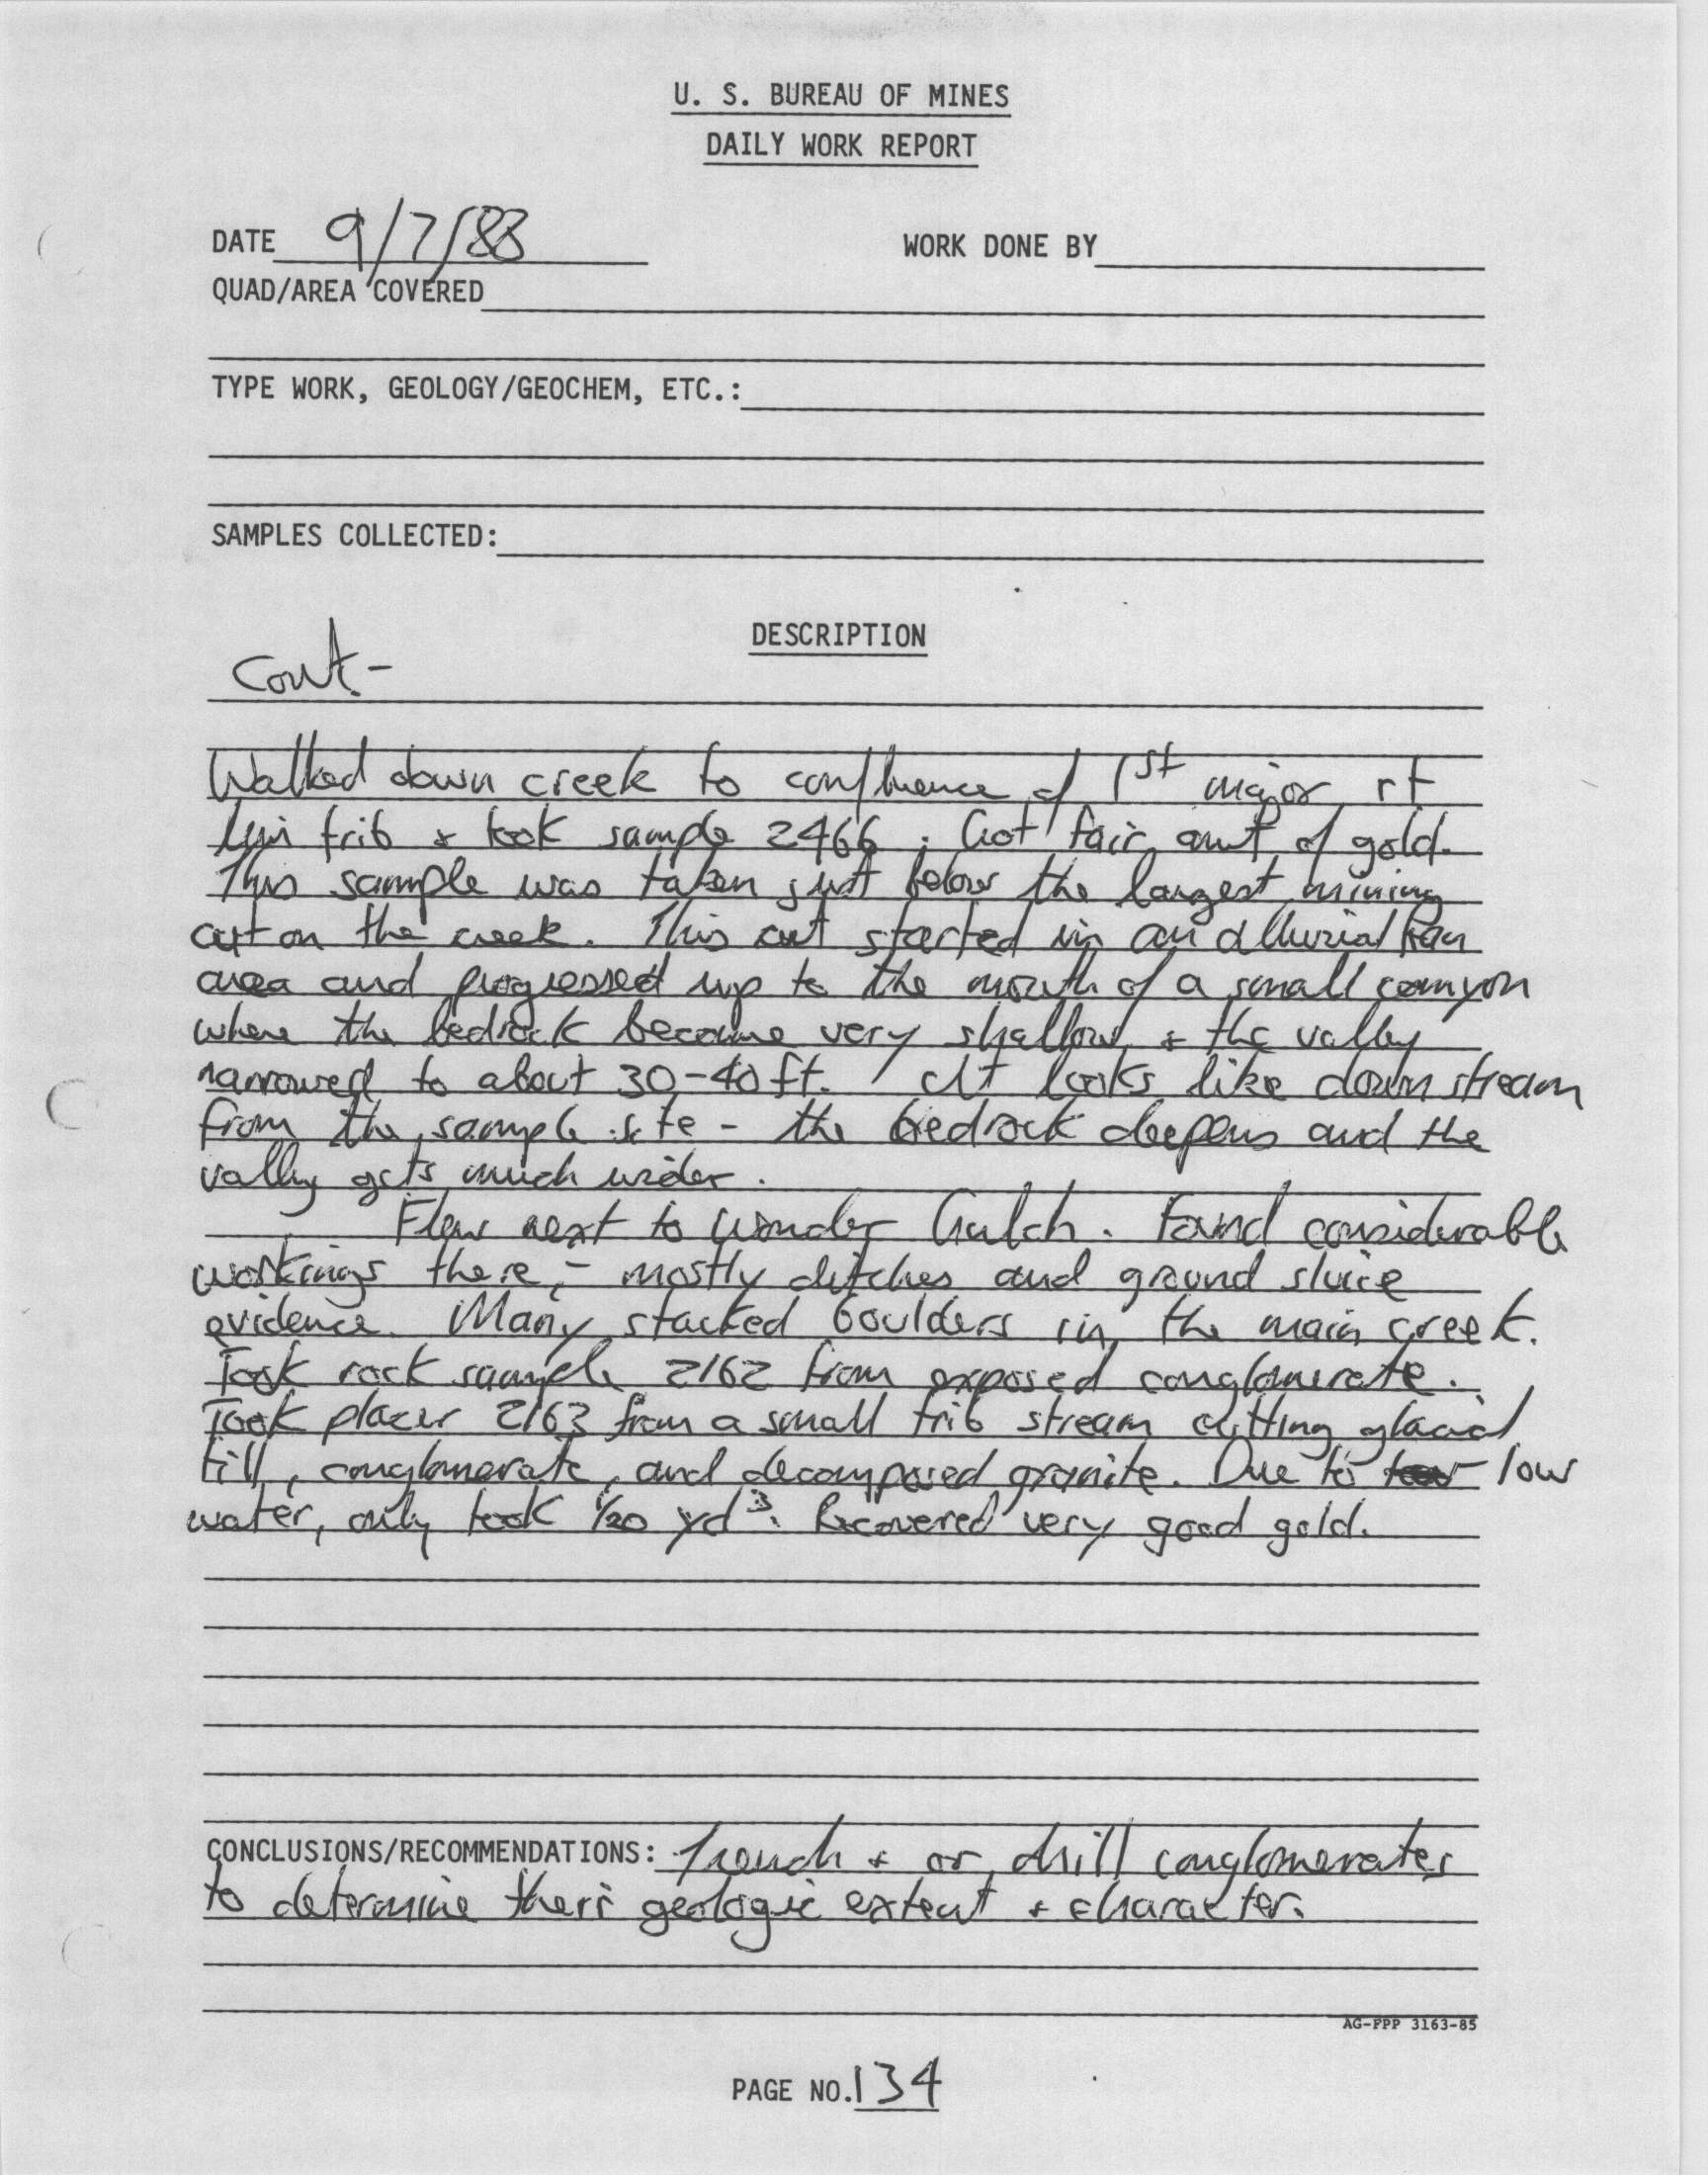 U. S. BUREAU OF MINES
DAILY WORK REPORT
DATE 9/7/88 WORK DONE BY
QUAD/AREA COVERED
TYPE WORK, GEOLOGY/GEOCHEM, ETC.:
SAMPLES COLLECTED:
DESCRIPTION
Cont-
Walked down creek to confluence of 1st major rt
lim trib + took sample 2466. Got fair amt of gold.
This sample was taken just below the largest mining
cut on the creek. This cut started in an alluvial fan
area and progressed up to the mouth of a small canyon
where the bedrock became very shallow + the valley
narrowed to about 30-40 ft. It looks like downstream
from the sample site - the bedrock deepens and the
valley gets much wider.
Flew next to Wonder Gulch. Found considerable
workings there, - mostly ditches and ground sluice
evidence. Many stacked boulders in the main creek.
Took rock sample 2162 from exposed conglomerate.
Took placer 2163 from a small trib stream cutting glacial
till, conglomerate, and decomposed granite. Due to low
water, only took 1/20 yd3. Recovered very good gold.
CONCLUSIONS/RECOMMENDATIONS: Trench + or drill conglomerates
to determine their geologic extent + character.
AG-FPP 3163-85
PAGE NO. 134